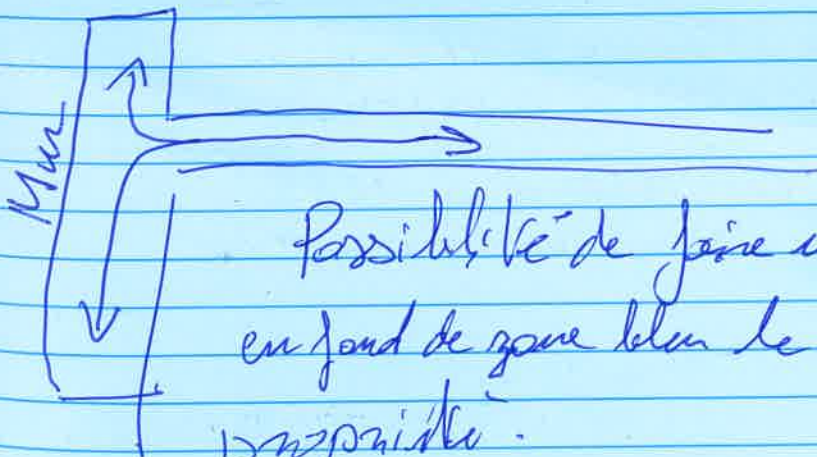 Mur
Possibilité de faire
en fond de zone bleu le
propriété.